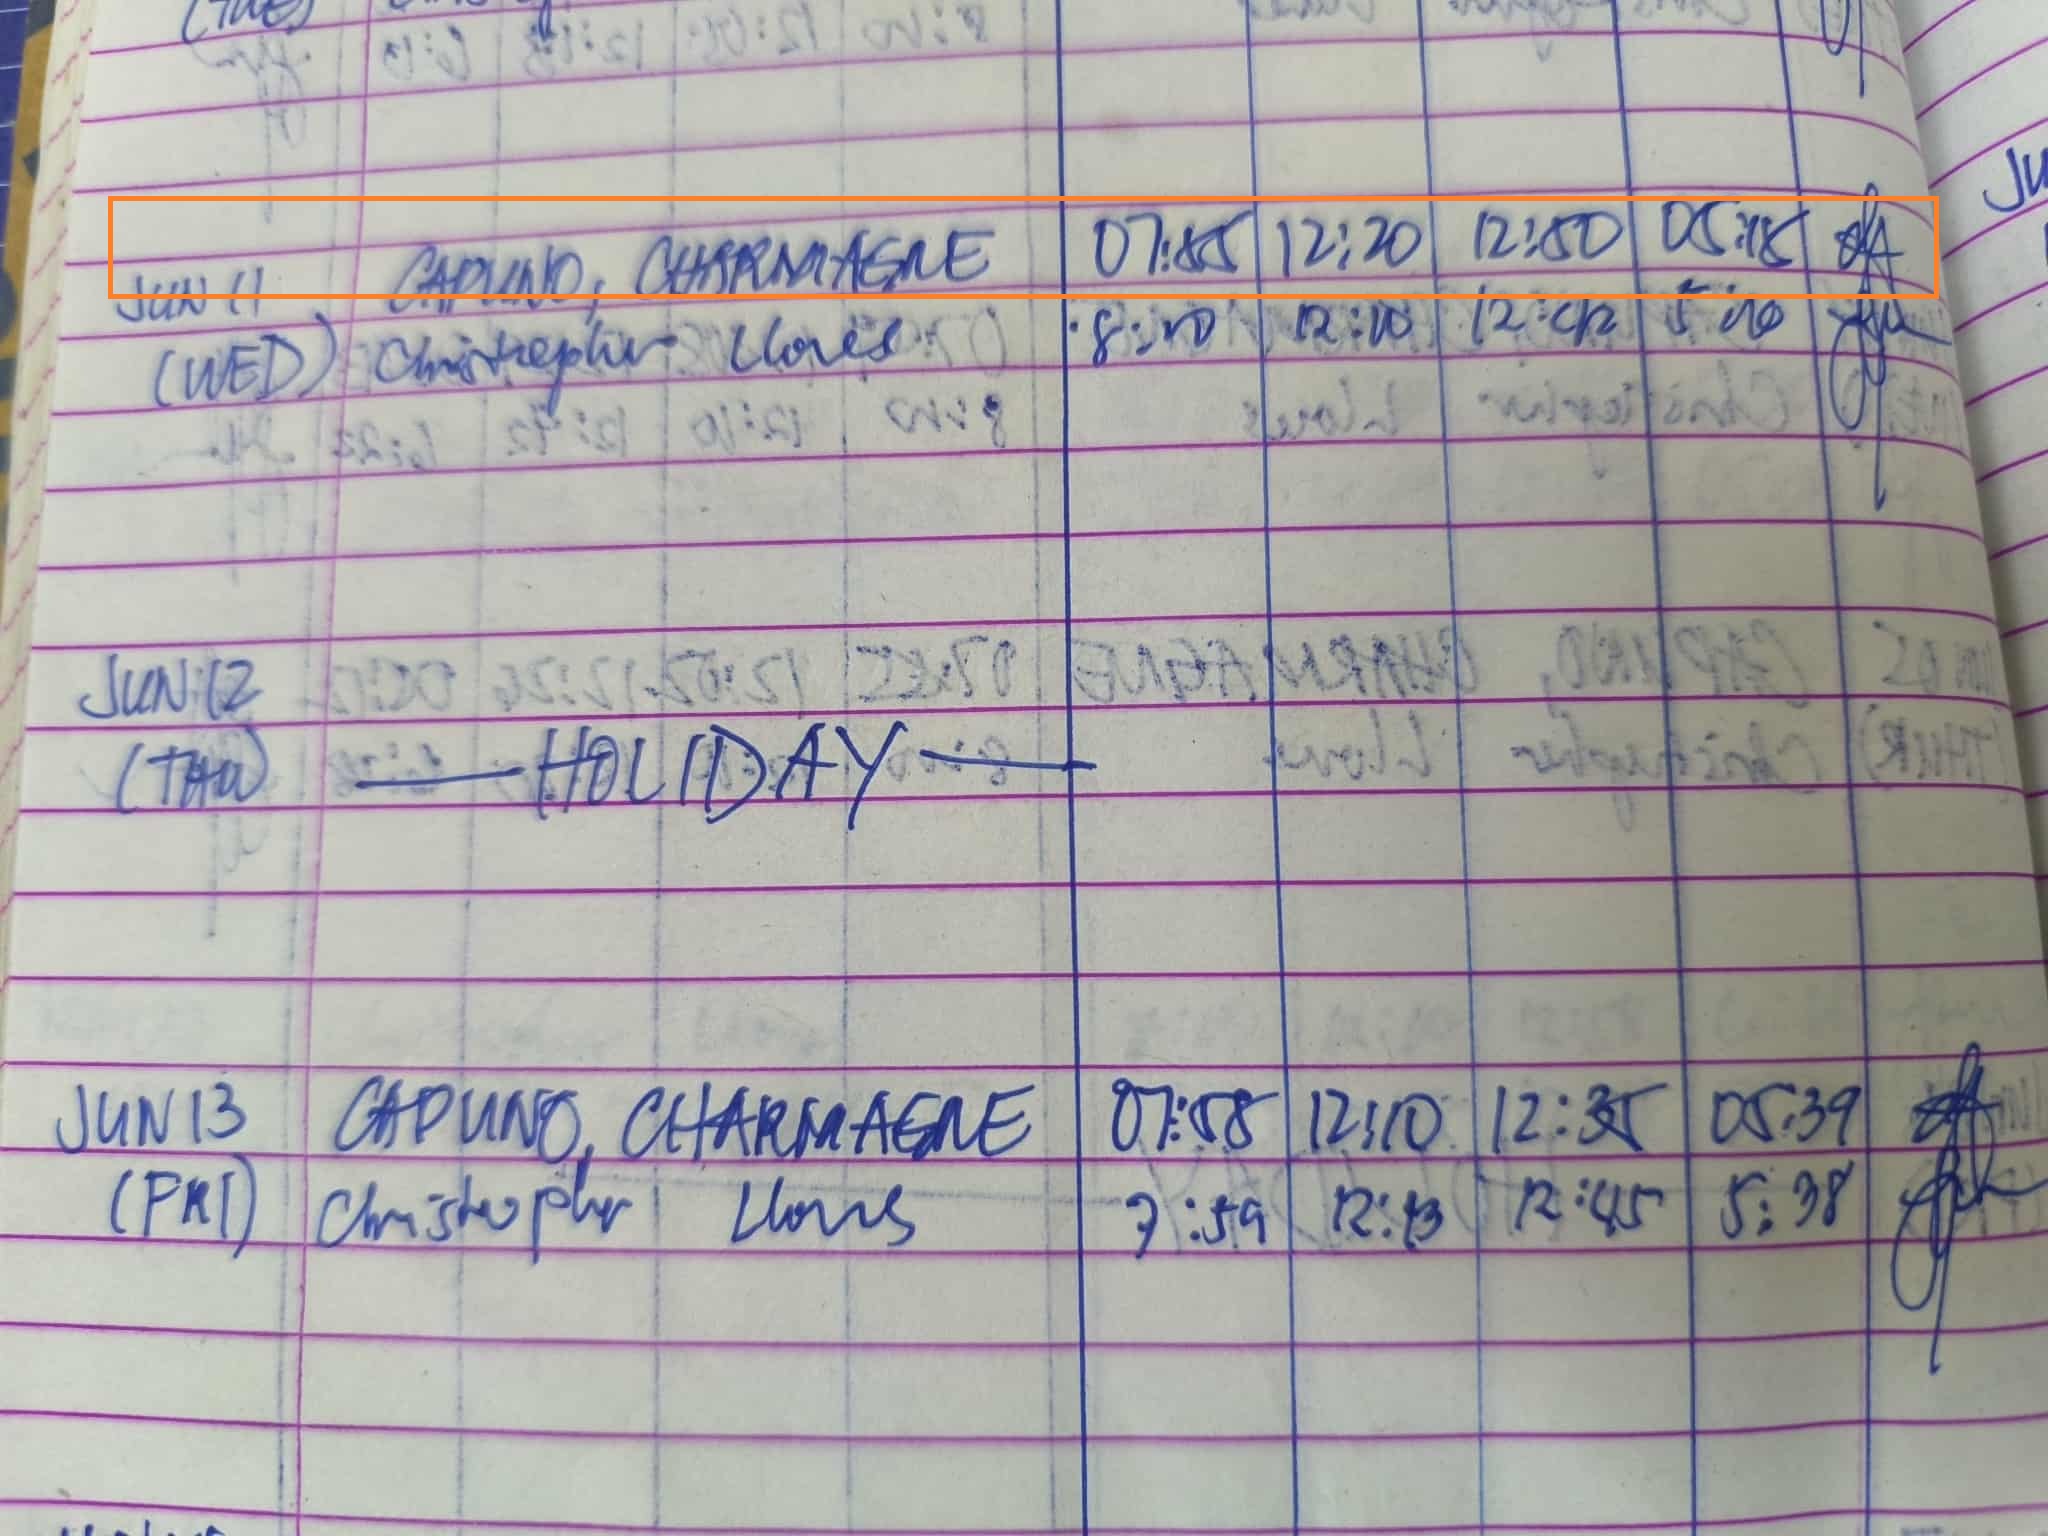 (TUE)
JUN 11 CAPUNO, CHARMAGNE 07:55 12:20 12:50 05:15
(WED) Christopher Llones 8:10 12:00 12:42 5:10
JUN 12
(THU) HOLIDAY
JUN 13 CAPUNO, CHARMAGNE 07:58 12:10 12:35 05:39
(FRI) Christopher Llones 7:59 12:13 12:45 5:38